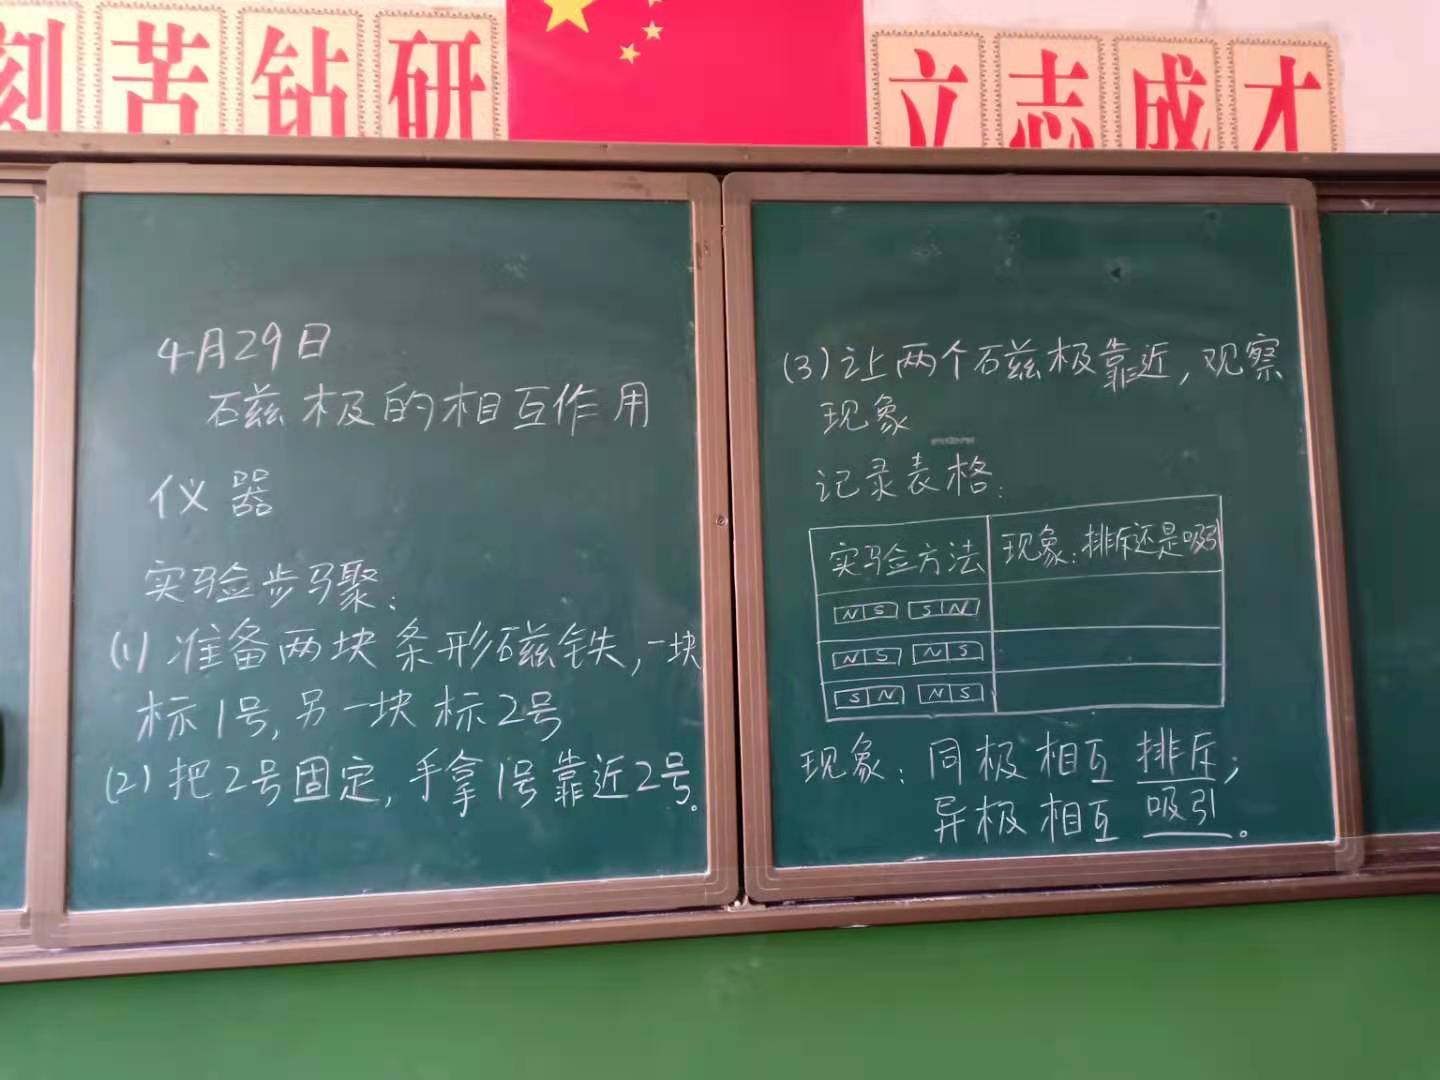 刻苦钻研
立志成才
4月29日
磁极的相互作用
仪器
实验步骤:
(1)准备两块条形磁铁,一块
标1号,另一块标2号
(2)把2号固定,手拿1号靠近2号。
(3)让两个磁极靠近,观察
现象
记录表格:
实验方法 现象:排斥还是吸引
N S S N
N S N S
S N N S
现象:同极相互排斥;
异极相互吸引。